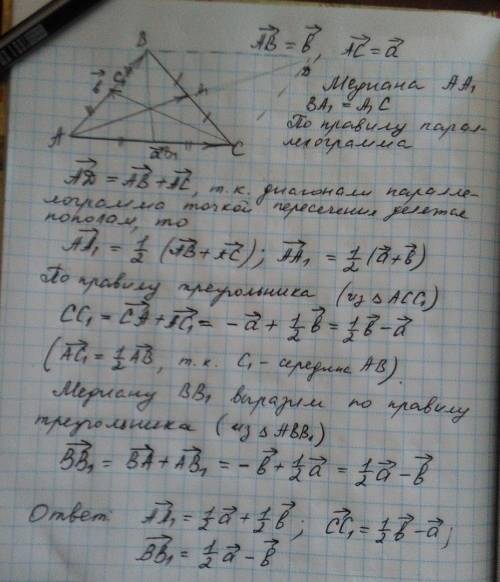 B
AB⃗ = b⃗, AC⃗ = a⃗
D
b⃗
C₁
A₁
Медиана AA₁
BA₁ = A₁C
A
a⃗
B₁
C
По правилу парал-
лелограмма
AD⃗ = AB⃗ + AC⃗, т.к. диагонали паралле-
лограмма точкой пересечения делятся
пополам, то
AA₁⃗ = 1/2 (AB⃗ + AC⃗); AA₁⃗ = 1/2 (a⃗ + b⃗)
По правилу треугольника (из △ACC₁)
CC₁ = CA⃗ + AC₁⃗ = -a⃗ + 1/2 b⃗ = 1/2 b⃗ - a⃗
(AC₁⃗ = 1/2 AB⃗, т.к. C₁ - середина AB).
Медиану BB₁ выразим по правилу
треугольника (из △ABB₁)
BB₁⃗ = BA⃗ + AB₁⃗ = -b⃗ + 1/2 a⃗ = 1/2 a⃗ - b⃗
Ответ: AA₁⃗ = 1/2 a⃗ + 1/2 b⃗; CC₁⃗ = 1/2 b⃗ - a⃗;
BB₁⃗ = 1/2 a⃗ - b⃗